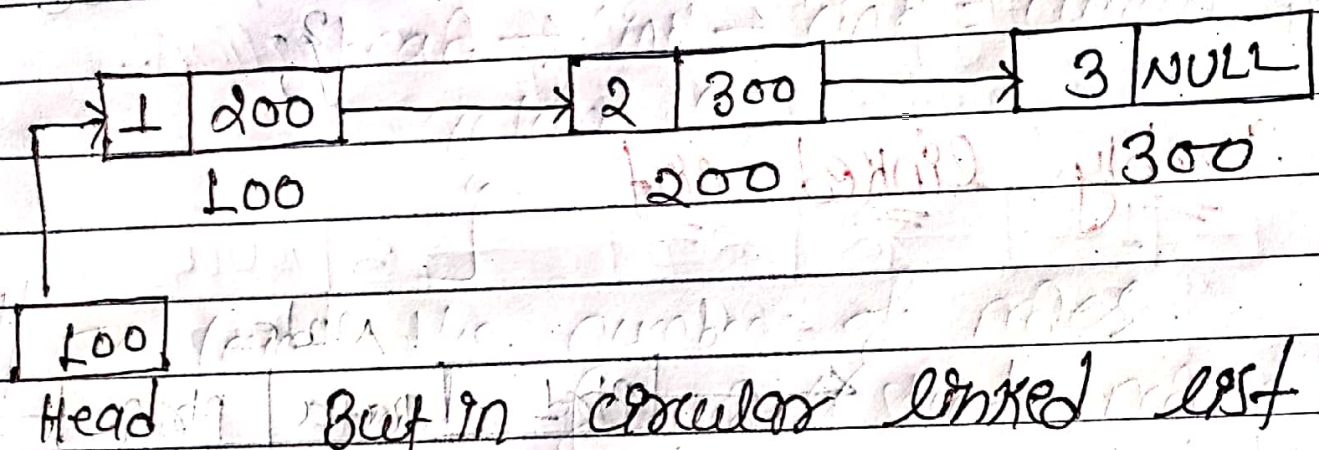 1 200 2 300 3 NULL
100 200 300
100
Head But in circular linked list